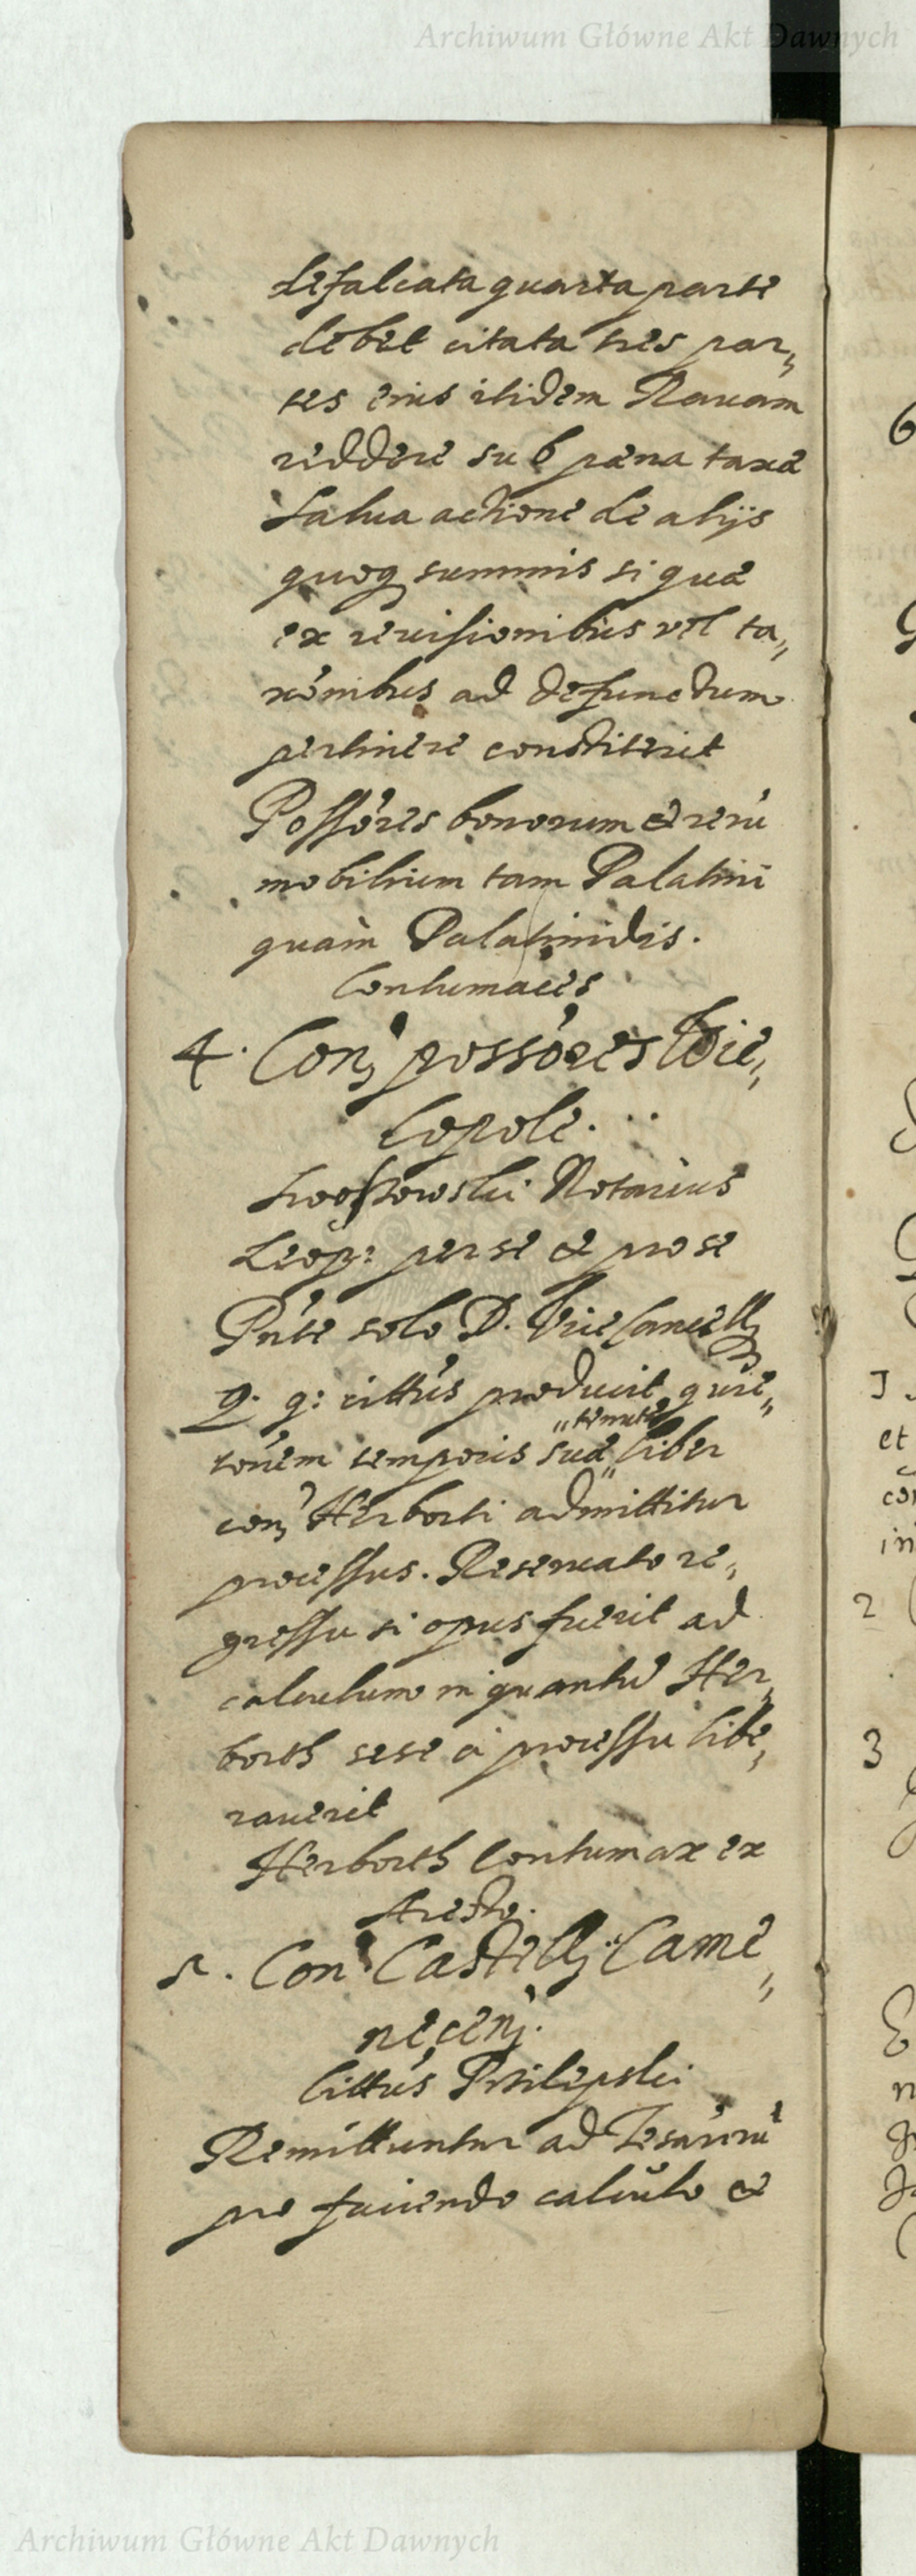 Archiwum Główne Akt Dawnych
defalcata quarta parte
debet citata tres par„
tes eius itidem Rauam
reddere sub pæna taxæ
Salua actione de alijs
quoq summis si quæ
ex reuisionibus vel ta„
xónibus ad defunctum
pertinere constiterit
Possóres bonorum & rerū
mobilium tam Palatini
quàm Palatinidis.
Contumaces
4. Con, possóres Wie„
lopole.
Notarius
Leop: per se & pro se
Pńte solo D. Vice Cancell
Q. q: cittús producit quie„
„tenutæ
tónem temporis suæ „ liber
con, Herborti admittitur
processus. Reseruato re„
gressu si opus fuerit ad
calculum in quantū Her„
borth sese à processu libe„
rauerit
Herborth Contumax ex
Aresto.
5. Con, Castell, Came„
necen,
Cittús Prilepski
Remittuntur ad Tesáurū
pro faciendo calculo &
6
G
J
et
co
in
2
3
Archiwum Główne Akt Dawnych